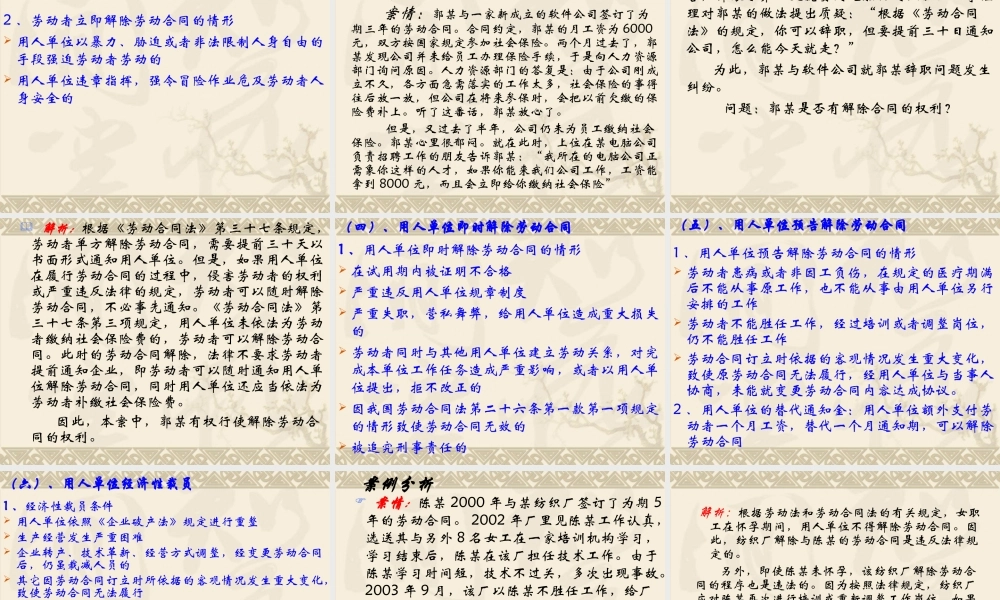 2、劳动者立即解除劳动合同的情形
用人单位以暴力、胁迫或者非法限制人身自由的
手段强迫劳动者劳动的
用人单位违章指挥，强令冒险作业危及劳动者人
身安全的
案情：郭某与一家新成立的软件公司签订了为
期三年的劳动合同。合同约定，郭某的月工资为 6000
元，双方按国家规定参加社会保险。两个月过去了，郭
某发现公司并未给员工办理保险手续，于是向人力资源
部门询问原因。人力资源部门的答复是：由于公司刚成
立不久，各方面急需落实的工作太多，社会保险的事得
往后放一放，但公司在将来参保时，会把以前欠缴的保
险费补上。听了这番话，郭某放心了。
但是，又过去了半年，公司仍未为员工缴纳社会
保险。郭某心里很郁闷。就在此时，上位在某电脑公司
负责招聘工作的朋友告诉郭某：“我所在的电脑公司正
需象你这样的人才，如果你能来我们公司工作，工资能
拿到 8000 元，而且会立即给你缴纳社会保险”
理对郭某的做法提出质疑：“根据《劳动合同
法》的规定，你可以辞职，但要提前三十日通知
公司，怎么能今天就走？”
为此，郭某与软件公司就郭某辞职问题发生
纠纷。
问题：郭某是否有解除合同的权利？
解析：根据《劳动合同法》第三十七条规定，
劳动者单方解除劳动合同，需要提前三十天以
书面形式通知用人单位。但是，如果用人单位
在履行劳动合同的过程中，侵害劳动者的权利
或严重违反法律的规定，劳动者可以随时解除
劳动合同，不必事先通知。《劳动合同法》第
三十七条第三项规定，用人单位未依法为劳动
者缴纳社会保险费的，劳动者可以解除劳动合
同。此时的劳动合同解除，法律不要求劳动者
提前通知企业，即劳动者可以随时通知用人单
位解除劳动合同，同时用人单位还应当依法为
劳动者补缴社会保险费。
因此，本案中，郭某有权行使解除劳动合
同的权利。
（四）、用人单位即时解除劳动合同
1、用人单位即时解除劳动合同的情形
在试用期内被证明不合格
严重违反用人单位规章制度
严重失职，营私舞弊，给用人单位造成重大损失
的
劳动者同时与其他用人单位建立劳动关系，对完
成本单位工作任务造成严重影响，或者以用人单
位提出，拒不改正的
因我国劳动合同法第二十六条第一款第一项规定
的情形致使劳动合同无效的
被追究刑事责任的
（五）、用人单位预告解除劳动合同
1、用人单位预告解除劳动合同的情形
劳动者患病或者非因工负伤，在规定的医疗期满
后不能从事原工作，也不能从事由用人单位另行
安排的工作
劳动者不能胜任工作，经过培训或者调整岗位，
仍不能胜任工作
劳动合同订立时依据的客观情况发生重大变化，
致使原劳动合同无法履行，经用人单位与当事人
协商，未能就变更劳动合同内容达成协议。
2、用人单位的替代通知金：用人单位额外支付劳
动者一个月工资，替代一个月通知期，可以解除
劳动合同
（六）、用人单位经济性裁员
1、经济性裁员条件
用人单位依照《企业破产法》规定进行重整
生产经营发生严重困难
企业转产、技术革新、经营方式调整，经变更劳动合同
后，仍虽裁减人员的
其它因劳动合同订立时所依据的客观情况发生重大变化，
致使劳动合同无法履行
案例分析
案情：陈某 2000 年与某纺织厂签订了为期 5
年的劳动合同。2002 年厂里见陈某工作认真，
选送其与另外 8 名女工在一家培训机构学习，
学习结束后，陈某在该厂担任技术工作。由于
陈某学习时间短，技术不过关，多次出现事故。
2003 年 9 月，该厂以陈某不胜任工作，给厂
解析：根据劳动法和劳动合同法的有关规定，女职
工在怀孕期间，用人单位不得解除劳动合同。因
此，纺织厂解除与陈某的劳动合同是违反法律规
定的。
另外，即使陈某未怀孕，该纺织厂解除劳动合
同的程序也是违法的。因为按照法律规定，纺织厂